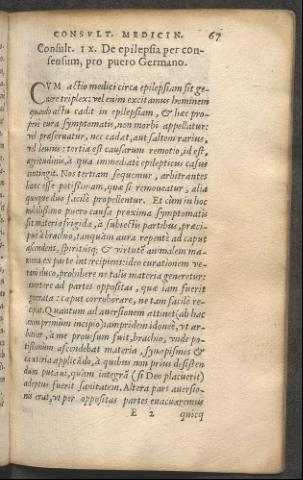 CONSVLT. MEDICIN. 67
Consult. IX. De epilepsia per con-
sensum, pro puero Germano.
CVM actio medici circa epilepsiam sit ge-
nere triplex: vel enim excitamus hominem
quando actu cadit in epilepsiam, & hæc pro-
priè cura symptomatis, non morbi appellatur:
vel præseruatur, nec cadat, aut saltem rarius,
vel leuius: tertia est causarum remotio, id est,
ægritudinis, à qua immediatè epilepticus casus
contingit. Nos tertiam sequemur, arbitrantes
hanc esse potissimam, quæ si remoueatur, aliæ
quoque duæ facilè propellentur. Et cùm in hoc
nobilissimo puero causa proxima symptomatis
sit materia frigida, à subiectis partibus, præci-
puè à brachio, tanquàm aura repentè ad caput
ascendens, spiritúsque & virtutē animalem ma-
xima ex parte intercipiens: ideo curationem ve-
ram duco, prohibere ne talis materia generetur:
auertere ad partes oppositas, quæ iam fuerit
generata: caput corroborare, ne tam facilè re-
cipiat. Quantum ad auersionem attinet (ab hac
enim primùm incipio) iampridem idoneè, vt ar-
bitror, à me prouisum fuit, brachio, vnde po-
tissimùm ascendebat materia, synapismos &
cauteria applicādo, à quibus non prius desisten-
dum putaui, quàm integrā (si Deo placuerit)
adeptus fuerit sanitatem. Altera pars auersio-
nis erat, vt per oppositas partes euacuaremus
E 2 quicq